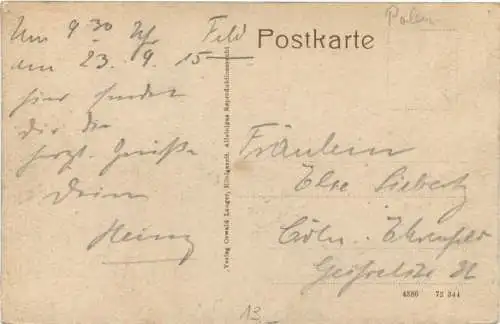 Um 9 30 Uhr Feld
am 23. 9. 15
hier sendet
Dir die
herzl. Grüße
Dein
Heinz
Polen
Postkarte
Verlag Oswald Langer, Königszelt. alleiniges Reproduktionsrecht
Fräulein
Else Siebertz
Cöln-Ehrenfeld
4886 72 344
13.–